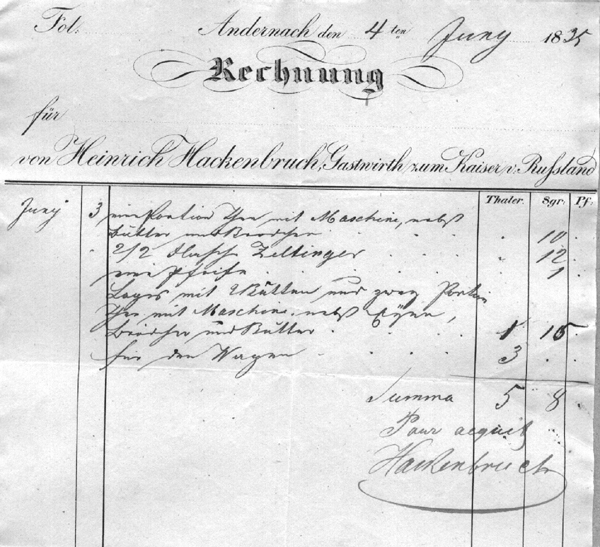 Fol. Andernach den 4ten Juny 1835
Rechnung
für
von Heinrich Hackenbruch, Gastwirth zum Kaiser v. Rußland
Thaler. Sgr. Pf.
Juny 3 eine Portion Thee mit Maschine, nebst
Butter und Brödchen 10
2/2 Flasch Zeltinger 12
eine Pfeife 1
Logis mit und zwey Portion
Thee mit Maschine nebst Eyern,
Brödchen und Butter 1 15
für den Wagen 3
Summa 5 8
Pour acquit
Hackenbruch